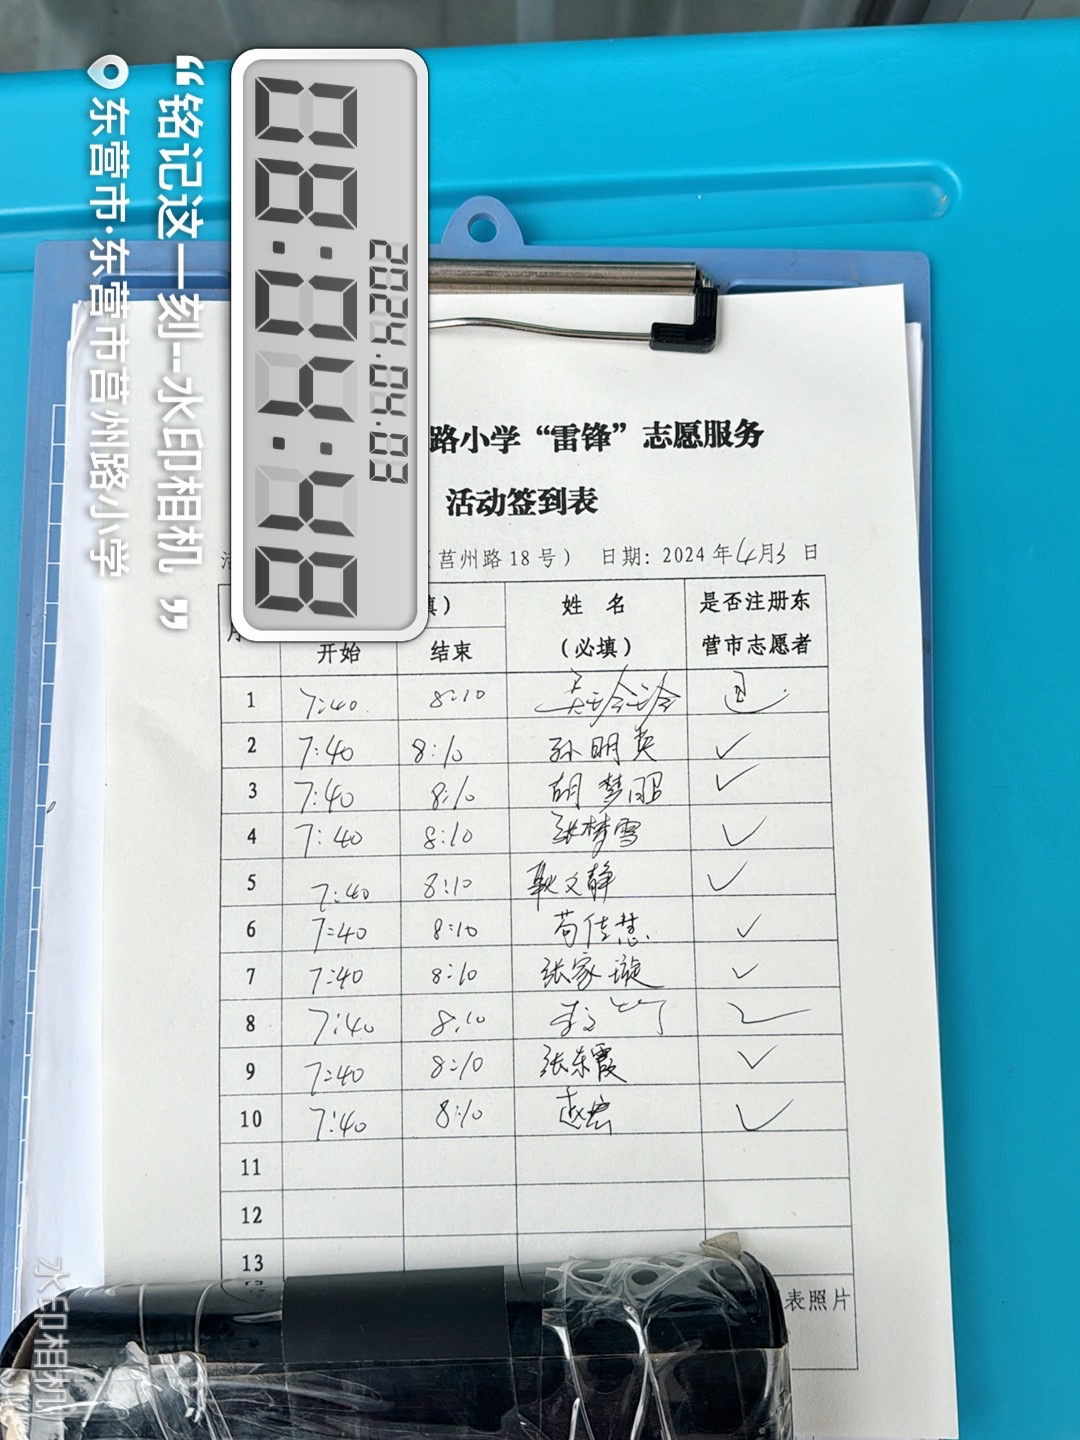 08:04:48
2024.04.03
“铭记这一刻--水印相机”
东营市·东营市莒州路小学
路小学“雷锋”志愿服务
活动签到表
（莒州路18号） 日期：2024年4月3日
填） 姓 名 是否注册东
开始 结束 （必填） 营市志愿者
1 7:40 8:10
2 7:40 8:10 孙明英 ✓
3 7:40 8:10 胡梦昭 ✓
4 7:40 8:10 张梦雪 ✓
5 7:40 8:10 耿文静 ✓
6 7:40 8:10 苟佳慧 ✓
7 7:40 8:10 张家璇 ✓
8 7:40 8:10 ✓
9 7:40 8:10 张东霞 ✓
10 7:40 8:10 赵宏 ✓
11
12
13
表照片
水印相机